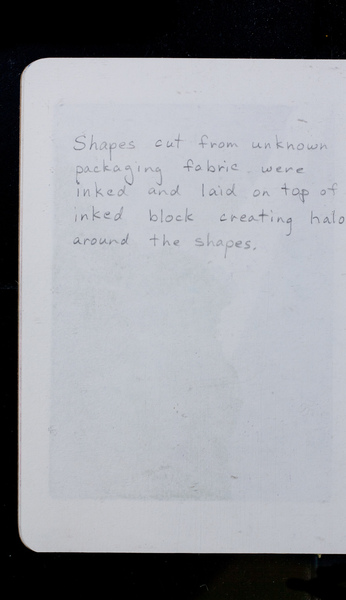 Shapes cut from unknown
packaging fabric were
inked and laid on top of
inked block creating halo
around the shapes.